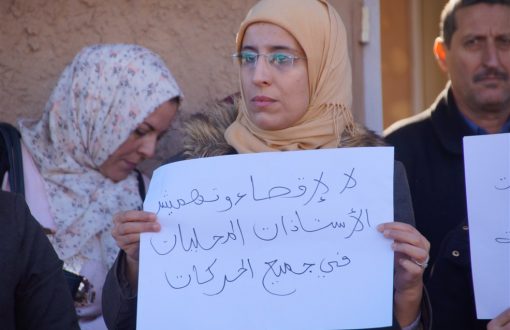 لا لإقصاء وتهميش
الأستاذات المحليات
في جميع الحركات